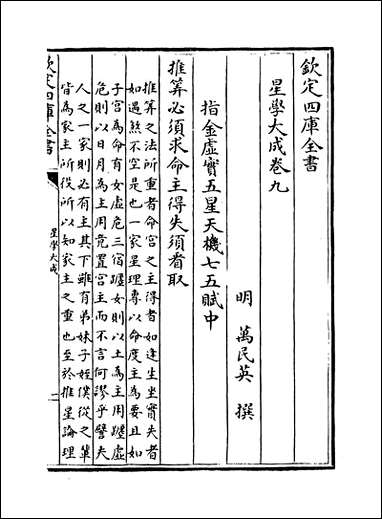 欽定四庫全書
星學大成卷九
明 萬民英 撰
指金虛實五星天機七五賦中
推算必須求命主得失須看取
推算之法所重者命宮之主得者如逢生坐實失者
如遇煞不空是也一家星理專以命度主為要且如
子宮為命有女虛危三宿躔女則以土為主用躔虛
危則以日月為主用竟置宮主而不言何謬乎譬夫
人之一家則必有主其下雖有弟妹子姪僕從之輩
皆為家主所役所以知家主之重也至於推星論理
欽定四庫全書
星學大成